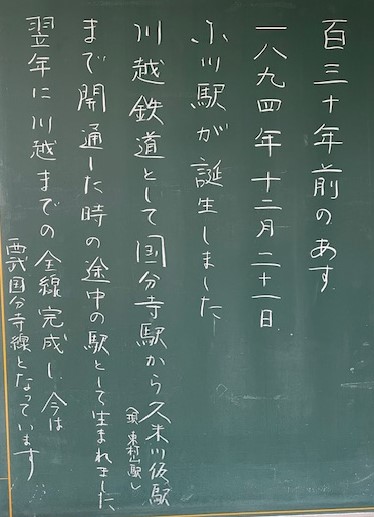 百三十年前のあす
一八九四年十二月二十一日
小川駅が誕生しました
川越鉄道として国分寺駅から久米川仮駅
(現 東村山駅)
まで開通した時の途中の駅として生まれました
翌年に川越までの全線完成し、今は
西武国分寺線となっています